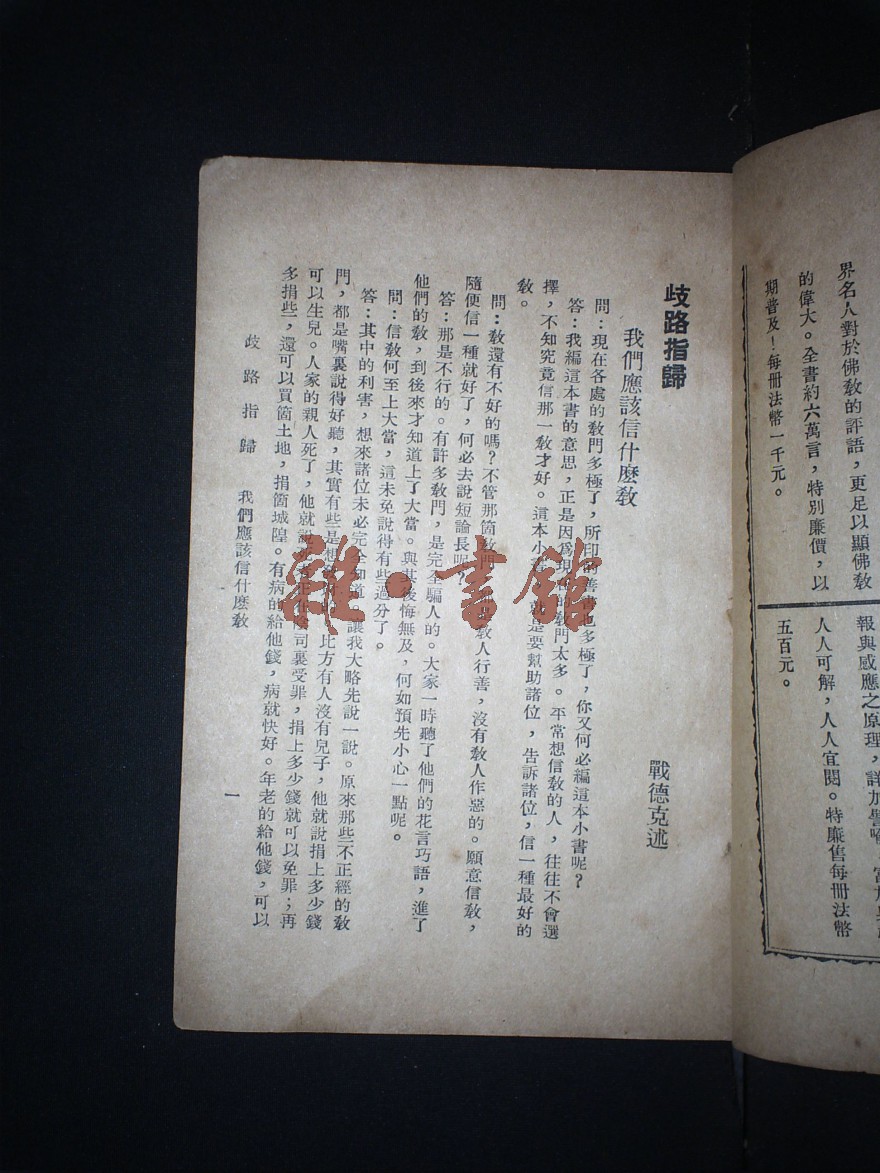 界名人對於佛教的評語，更足以顯佛教
的偉大。全書約六萬言，特別廉價，以
期普及！每冊法幣一千元。
報與感應之原理，詳加
人人可解，人人宜閱。特廉售每冊法幣
五百元。
歧路指歸
戰德克述
我們應該信什麼教
問：現在各處的教門多極了，所印的善書也多極了，你又何必編這本小書呢？
答：我編這本書的意思，正是因爲現在的教門太多。平常想信教的人，往往不會選
擇，不知究竟信那一教才好。這本小書，就是要幫助諸位，告訴諸位，信一種最好的
教。
問：教還有不好的嗎？不管那箇教門，教人行善，沒有教人作惡的。願意信教，
隨便信一種就好了，何必去說短論長呢？
答：那是不行的。有許多教門，是完全騙人的。大家一時聽了他們的花言巧語，進了
他們的教，到後來才知道上了大當。與其後悔無及，何如預先小心一點呢。
問：信教何至上大當，這未免說得有些過分了。
答：其中的利害，想來諸位未必完全知道，讓我大略先說一說。原來那些不正經的教
門，都是嘴裏說得好聽，其實有些是想 比方有人沒有兒子，他就說捐上多少錢
可以生兒。人家的親人死了，他就說 司裏受罪，捐上多少錢就可以免罪；再
多捐些，還可以買箇土地，捐箇城隍。有病的給他錢，病就快好。年老的給他錢，可以
歧路指歸 我們應該信什麼教
一
雜·書館